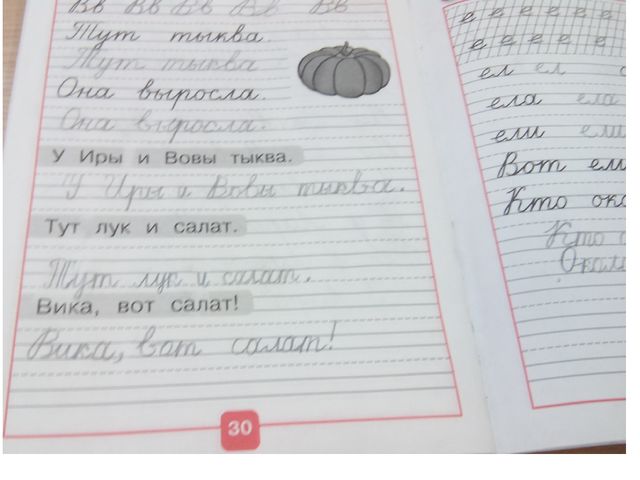 Вв Вв Вв Вв Вв
Тут тыква.
Тут тыква
Она выросла.
Она выросла.
У Иры и Вовы тыква.
У Иры и Вовы тыква.
Тут лук и салат.
Тут лук и салат.
Вика, вот салат!
Вика, вот салат!
30
е е е е е е
е е е е е
ел ел
ела ела
ели ели
Вот ели
Кто
Кто